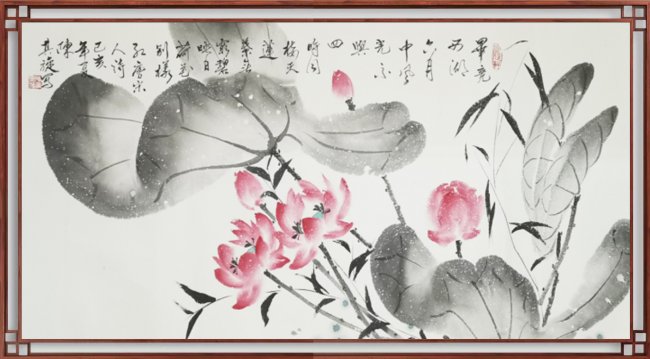 畢竟
西湖
六月
中風
光不
與
四
時同
接天
蓮
葉無
窮碧
映日
荷花
別樣
紅唐宋
人詩
己亥
年夏
陳
其旋寫